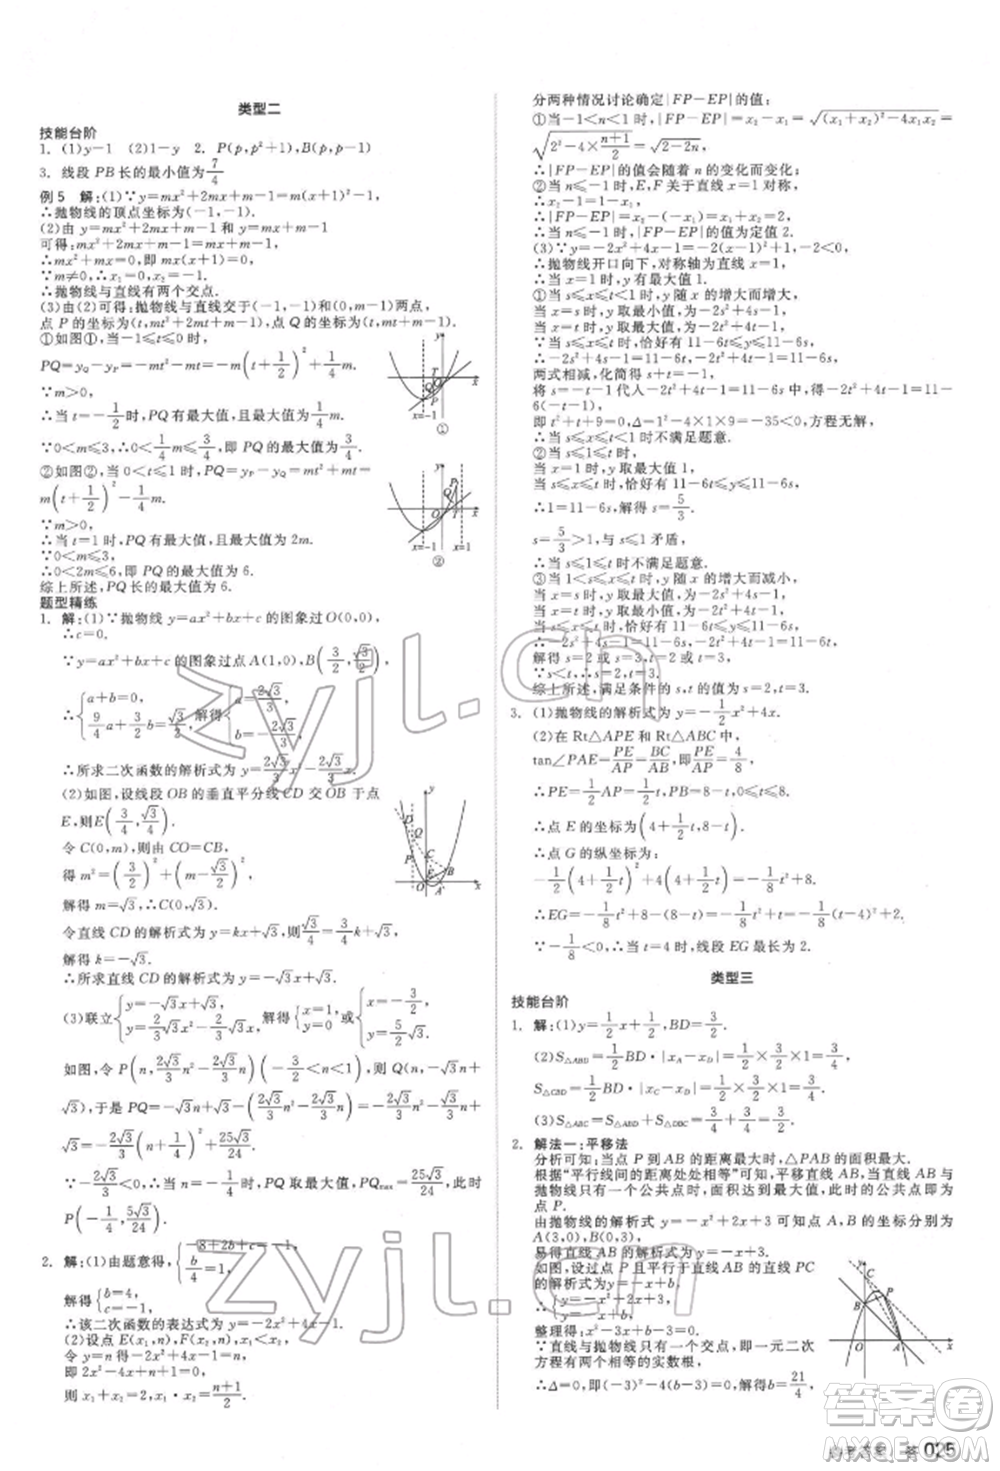 类型二
技能台阶
1. (1)y-1 (2)1-y 2. P(p,p²+1),B(p,p)
3. 线段 PB 长的最小值为7/4
例 5 解:(1)∵y=mx²+2mx+m-1=m(x+1)²-1,
∴抛物线的顶点坐标为(-1,-1).
(2)由 y=mx²+2mx+m-1 和 y=mx+m-1
可得:mx²+2mx+m-1=mx+m-1,
∴mx²+mx=0,即 mx(x+1)=0.
∵m≠0,∴x₁=0,x₂=-1.
∴抛物线与直线有两个交点.
(3)由(2)可得:抛物线与直线交于(-1,-1)和(0,m-1)两点,
点 P 的坐标为(t,mt²+2mt+m-1),点 Q 的坐标为(t,mt+m-1).
①如图①,当-1≤t≤0 时,
PQ=y_Q-y_P=-mt²-mt=-m(t+1/2)²+1/4m.
∵m>0,
∴当 t=-1/2时,PQ 有最大值,且最大值为1/4m.
∵0<m≤3,∴0<1/4m≤3/4,即 PQ 的最大值为3/4.
②如图②,当 0<t≤1 时,PQ=y_P-y_Q=mt²+mt=
m(t+1/2)²-1/4m.
∵m>0,
∴当 t=1 时,PQ 有最大值,且最大值为 2m.
∵0<m≤3,
∴0<2m≤6,即 PQ 的最大值为 6.
综上所述,PQ 的最大值为 6.
题型精练
1. 解:(1)∵抛物线 y=ax²+bx+c 的图象过点O(0,0),
∴c=0.
∵y=ax²+bx+c 的图象过点 A(1,0),B(3/2,√3/2),
∴{a+b=0, 9/4a+3/2b=√3/2, 解得{a=2√3/3, b=-2√3/3.
∴所求二次函数的解析式为 y=2√3/3x²-2√3/3x.
(2)如图,设线段 OB 的垂直平分线 CD 交 OB 于点
E,则E(3/4,√3/4).
令 C(0,m),则由 CO=CB,
得 m²=(3/2)²+(√3/2-m)²,
解得 m=√3,∴C(0,√3).
令直线 CD 的解析式为 y=kx+√3,则√3/4=3/4k+√3,
解得 k=-√3.
∴所求直线 CD 的解析式为 y=-√3x+√3.
(3)联立{y=-√3x+√3, y=2√3/3x²-2√3/3x, 解得{x=1, y=0 或{x=-3/2, y=5/2√3.
如图,令 P(n,2√3/3n²-2√3/3n)(-3/2<n<1),则 Q(n,-√3n+
√3),于是 PQ=-√3n+√3-(2√3/3n²-2√3/3n)=-2√3/3n²-√3/3n+√3
=-2√3/3(n+1/4)²+25√3/24.
∵-2√3/3<0,∴当 n=-1/4时,PQ 取最大值,PQmax=25√3/24,此时
P(-1/4,5√3/24).
2. 解:(1)由题意得,{-8+2b+c=-1, b/4=1,
解得{b=4, c=-1.
∴该二次函数的解析式为 y=-2x²+4x-1.
(2)设点 E(x₁,n),F(x₂,n),且 x₁<x₂.
令-2x²+4x-1=-2x+n,
即 2x²-6x+n+1=0,
则 x₁+x₂=3,x₁x₂=(n+1)/2.
分两种情况讨论确定|FP-EP|的值:
∴|FP-EP|的值会随着 n 的变化而变化;
②当 n≤-1 时,E,F 关于直线 x=1 对称,
∴|FP-EP|的值为定值 2.
(3)∵y=-2x²+4x-1=-2(x-1)²+1,-2<0,
∴抛物线开口向下,对称轴为直线 x=1,
∴抛物线有最大值 1.
①当 s≤x≤t≤1 时,y 随 x 的增大而增大,
当 x=s 时,y 取最小值,为-2s²+4s-1.
当 x=t 时,y 取最大值,为-2t²+4t-1.
两式相减,化简得 s+t=-1.
将 s=-t-1代入-2t²+4t-1=11-6s,得-2t²+4t-1=11-
6(-t-1).
即 t²+t+9=0,Δ=1²-4×1×9=-35<0,方程无解.
∴当 s≤x≤t≤1 时不满足题意.
②当 s≤1≤t 时,
当 x=1 时,y 取最大值 1.
∵当 s≤x≤t 时,恰好有 11-6t≤y≤11-6s,
∴1=11-6s,解得 s=5/3.
s=5/3>1,与 s≤1 矛盾.
∴当 s≤1≤t 时不满足题意.
③当 1<s≤x≤t 时,y 随 x 的增大而减小,
∵当 s≤x≤t 时,恰好有 11-6t≤y≤11-6s,
解得 s=2 或 s=3,t=2 或 t=3.
∵s<t,∴s=2,t=3.
综上所述,满足条件的 s,t 的值为 s=2,t=3.
3. (1)抛物线的解析式为 y=-1/2x²+4x.
(2)在 Rt△APE 和 Rt△ABC 中,
tan∠PAE=PE/AP=BC/AB,即PE/AP=4/8,
∴PE=1/2AP=1/2t,0≤t≤8.
∴点 E 的坐标为(4+1/2t,8-t).
∴点 G 的纵坐标为
-1/2(4+1/2t)²+4(4+1/2t)=-1/8t²+8.
∴EG=-1/8t²+8-(8-t)=-1/8t²+t=-1/8(t-4)²+2.
∵-1/8<0,∴当 t=4 时,线段 EG 最长为 2.
类型三
技能台阶
1. 解:(1)y=1/2x+1/2,BD=3/2.
(2)S△ABD=1/2BD·|x_A-x_D|=1/2×3/2×1=3/4,
(3)S△ABC=S△ABD+S△DBC=3/4+3/4=3/2.
2. 解法一:平移法
分析可知:当点 P 到 AB 的距离最大时,△PAB 的面积最大.
根据“平行线间的距离处处相等”可知,平移直线 AB,当 AB 与
抛物线只有一个公共点时,面积达到最大,此时的公共点即为
点 P.
由抛物线的解析式为 y=-x²+2x+3可知点 A,B 的坐标分别为
易得直线 AB 的解析式为 y=-x+3.
如图,设过点 P 且平行于直线 AB 的直线 PC
的解析式为 y=-x+b.
整理得-x²+3x+3-b=0.
∵直线与抛物线只有一个交点,即一元二次
方程有两个相等的实数根,
∴Δ=0,即(-3)²-4(b-3)=0,解得b=21/4,
参考答案 答 025